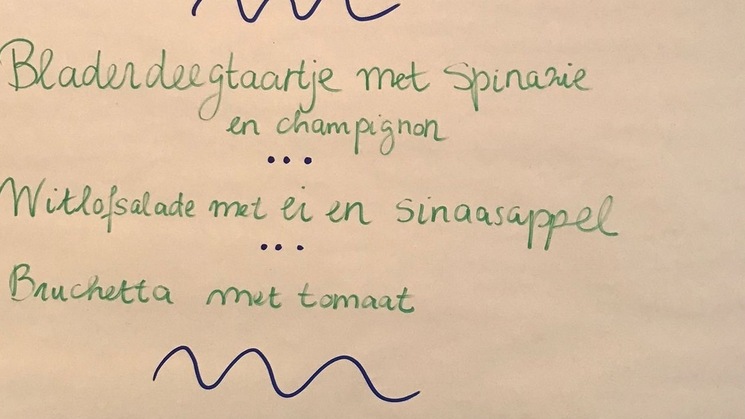 Bladerdeegtaartje met spinazie
en champignon
...
Witlofsalade met ei en sinaasappel
...
Bruchetta met tomaat